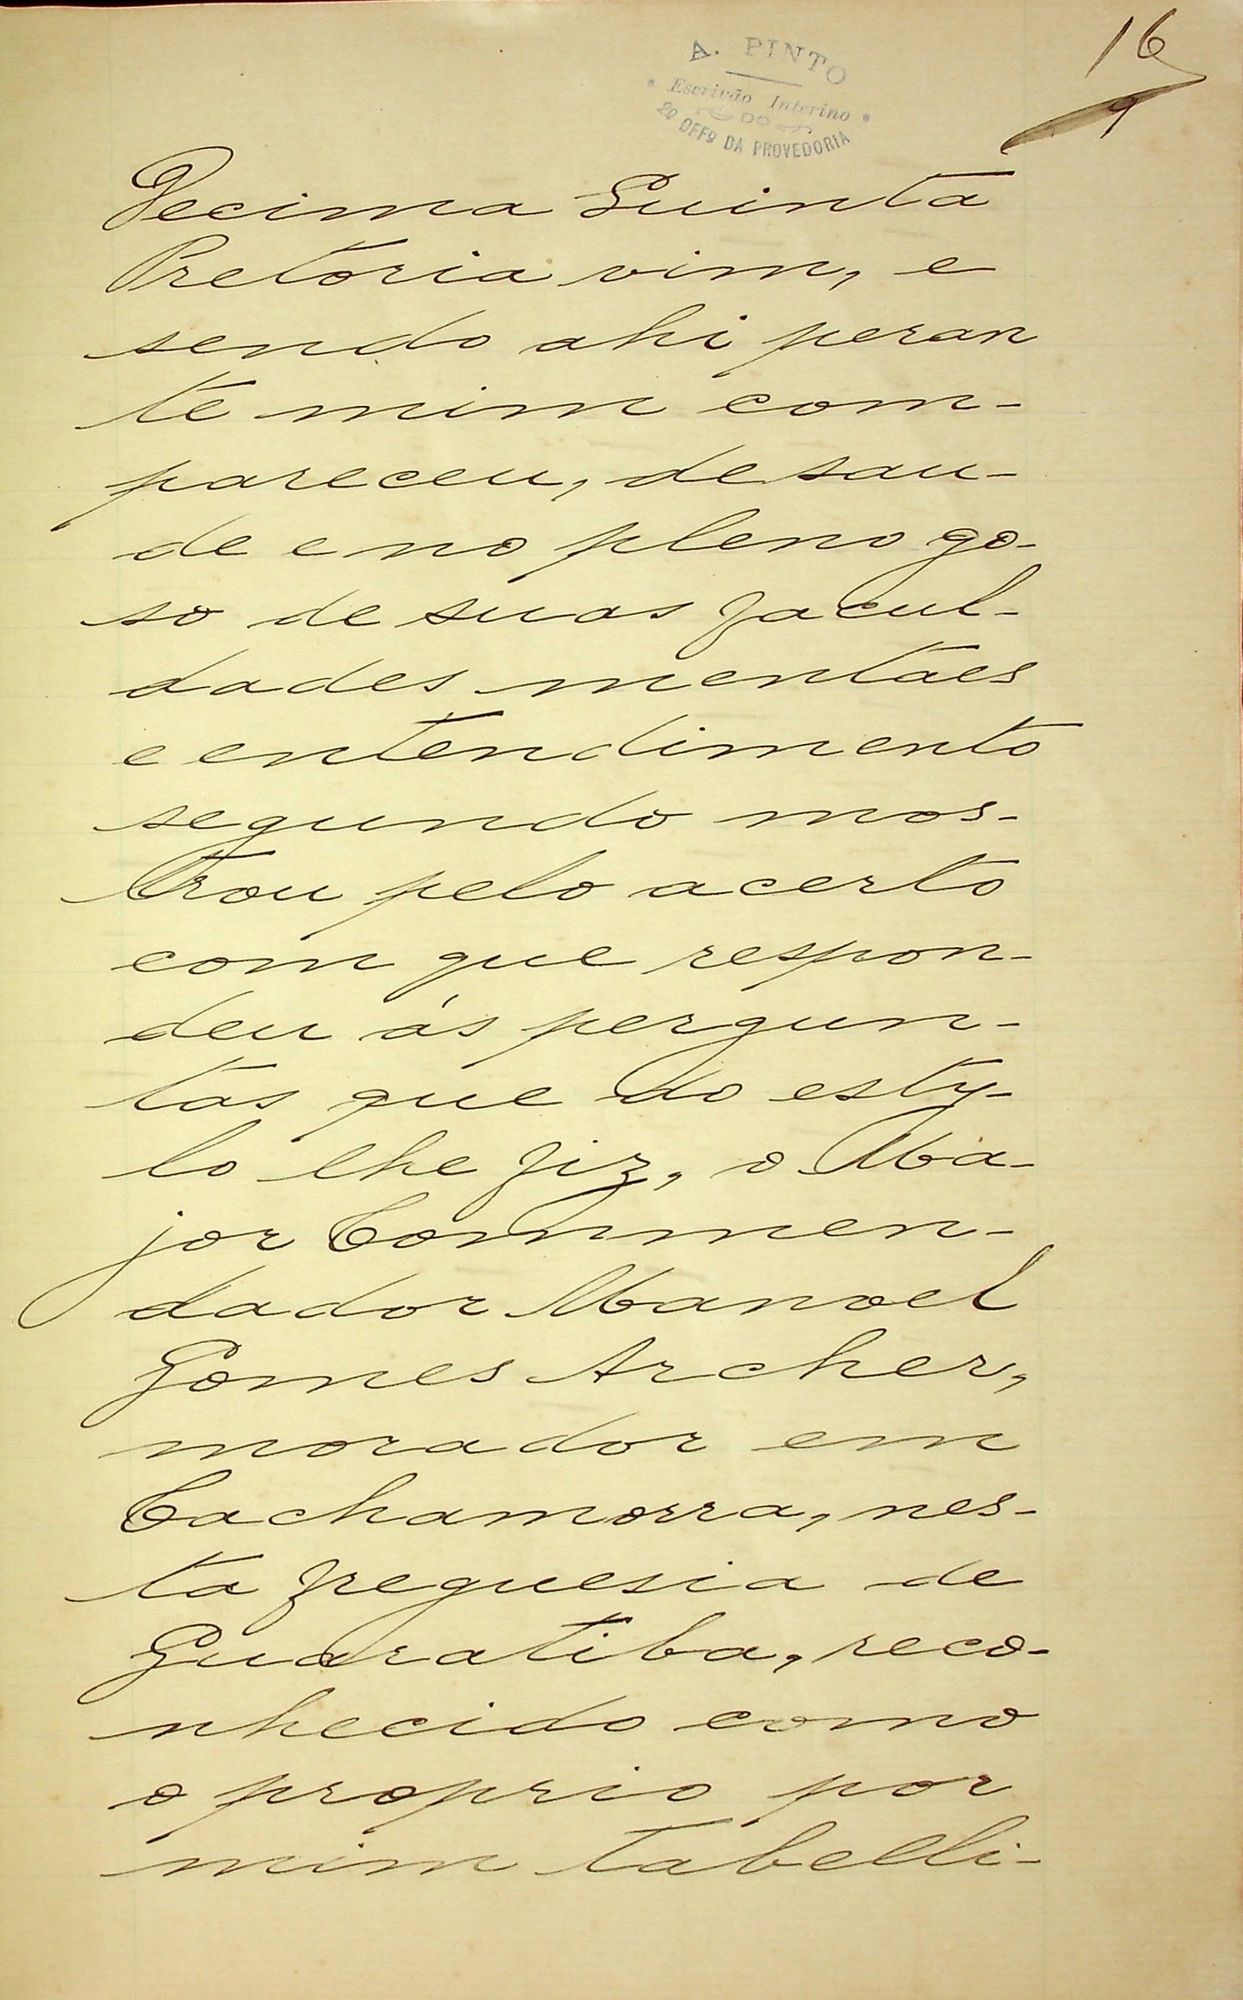 16
A. PINTO
Escrivão Interino
DO
2º OFFº DA PROVEDORIA
Decima Quinta
Pretoria vim, e
sendo ahi peran
te mim com-
pareceu, de sau-
de e no pleno go-
so de suas facul-
dades mentaes
e entendimento
segundo mos-
trou pelo acerto
com que respon-
deu ás pergun-
tas que do esty-
lo lhe fiz, o Ma-
jor Commen-
dador Manoel
Gomes Archer,
morador em
Cachamorra, nes-
ta freguesia de
Guaratiba, reco-
nhecido como
o proprio por
mim tabelli-